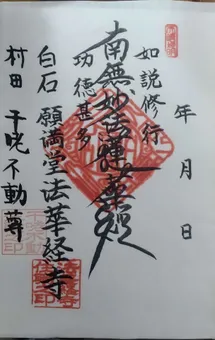 年 月 日
如説修行
南無妙法蓮華経
功徳甚多
白石 願満堂法華経寺
村田 干咤不動尊